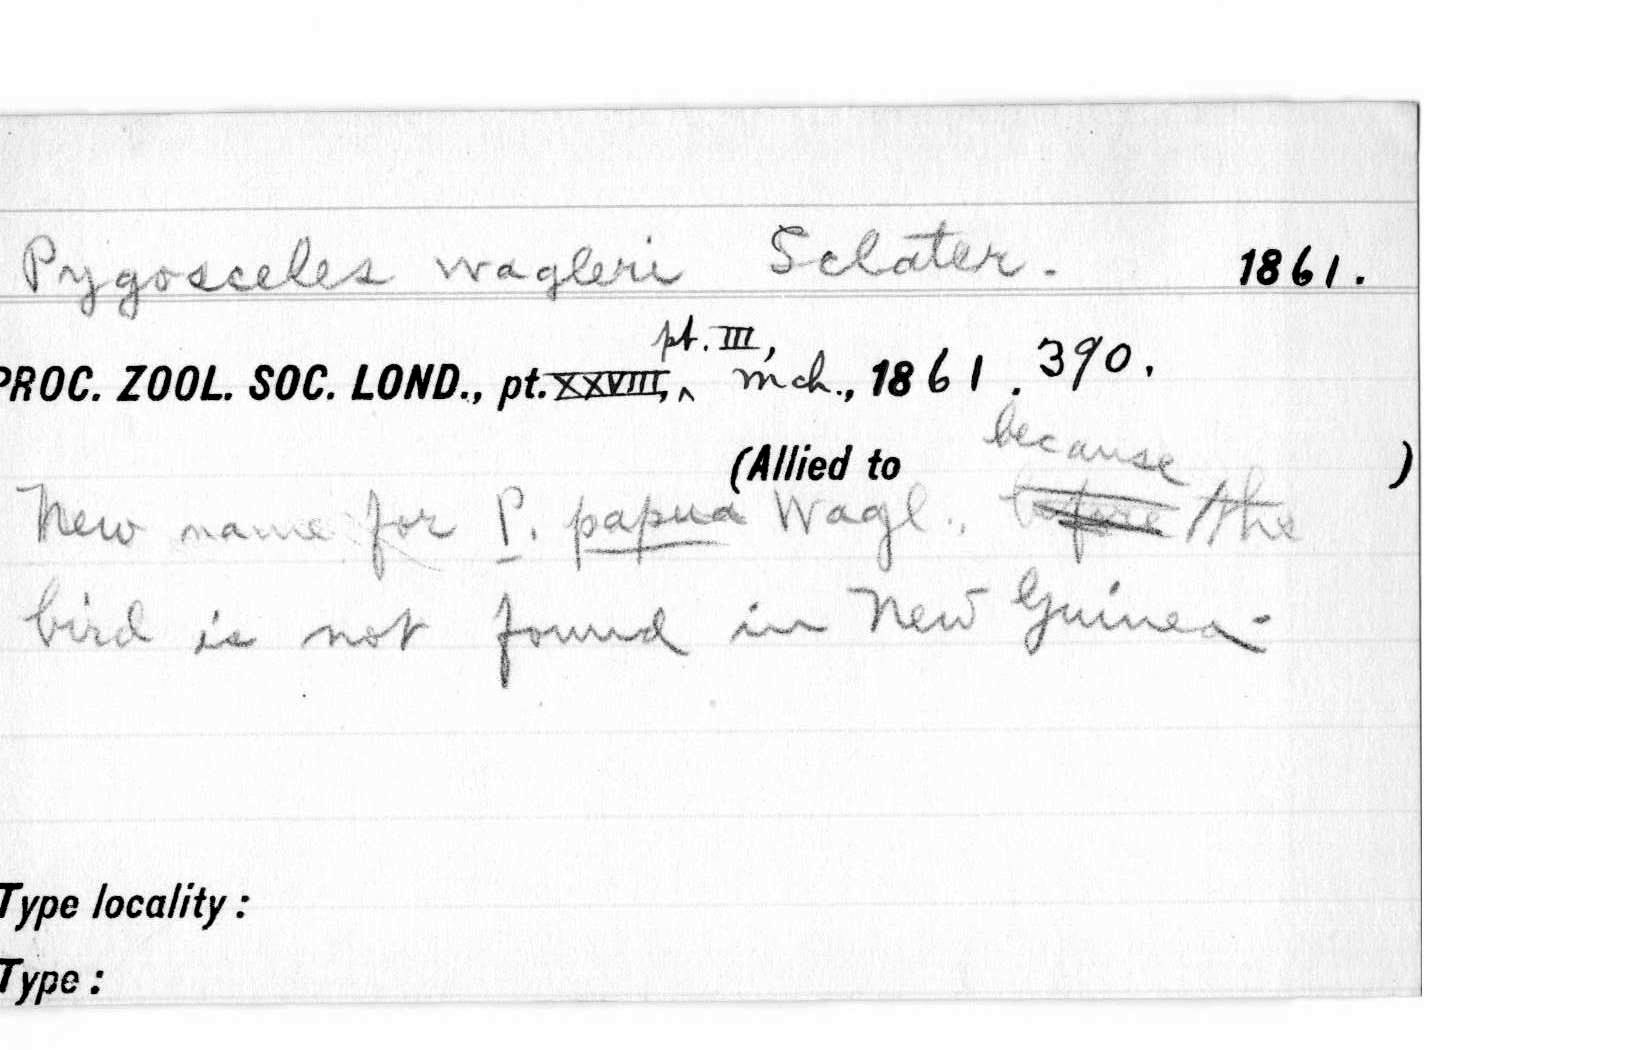 Pygosceles wagleri Sclater. 1861.
pt. III,
PROC. ZOOL. SOC. LOND., pt. XXVIII, ^ mch., 1861. 390.
because
(Allied to )
New name for P. papua Wagl., before the
bird is not found in New Guinea.
Type locality:
Type: